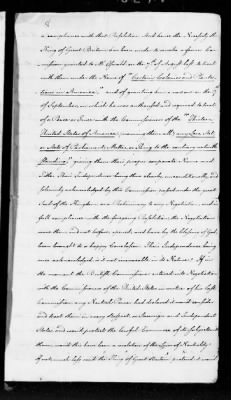 a compliance with that Resolution. And hence the Necessity the
King of Great Britain has been under to make a former Com-
mission granted to Mr Oswald on the 7th of August last to treat
with them under the Name of "Certain Colonies and Planta-
tions in America" and of granting him a new one on the 21st
of September, in which he was authorized and required to treat
of a Peace or Truce with the Commissioners of the "Thirteen
United States of America, (naming them all) any Law, Act,
or Acts of Parliament, Matter, or Thing to the contrary notwith
standing" giving them their proper corporate Name and
Titles. Their Independence being thus clearly, unconditionally, and
solemnly acknowledged by this Commission passed under the great
Seal of the Kingdom as a Preliminary to any Negotiation, and in
full compliance with the foregoing Resolution; the Negotiations
were then, and not before opened, and have by the Blessing of God,
been brought to a happy Conclusion. Their Independence being
once acknowledged, is it not irrevocable in its Nature? If in
the moment the British Commissioner entered into Negotiation
with the Commissioners of the United States in virtue of his last
Commission any Neutral Power had declared it would consider
and treat them in every respect as Sovereign and Independent
States and would protect the lawful Commerce of its Subjects with
them, would this have been a violation of the Laws of Neutrality?
If not, much less until the "King of Great Britain" pretend it would